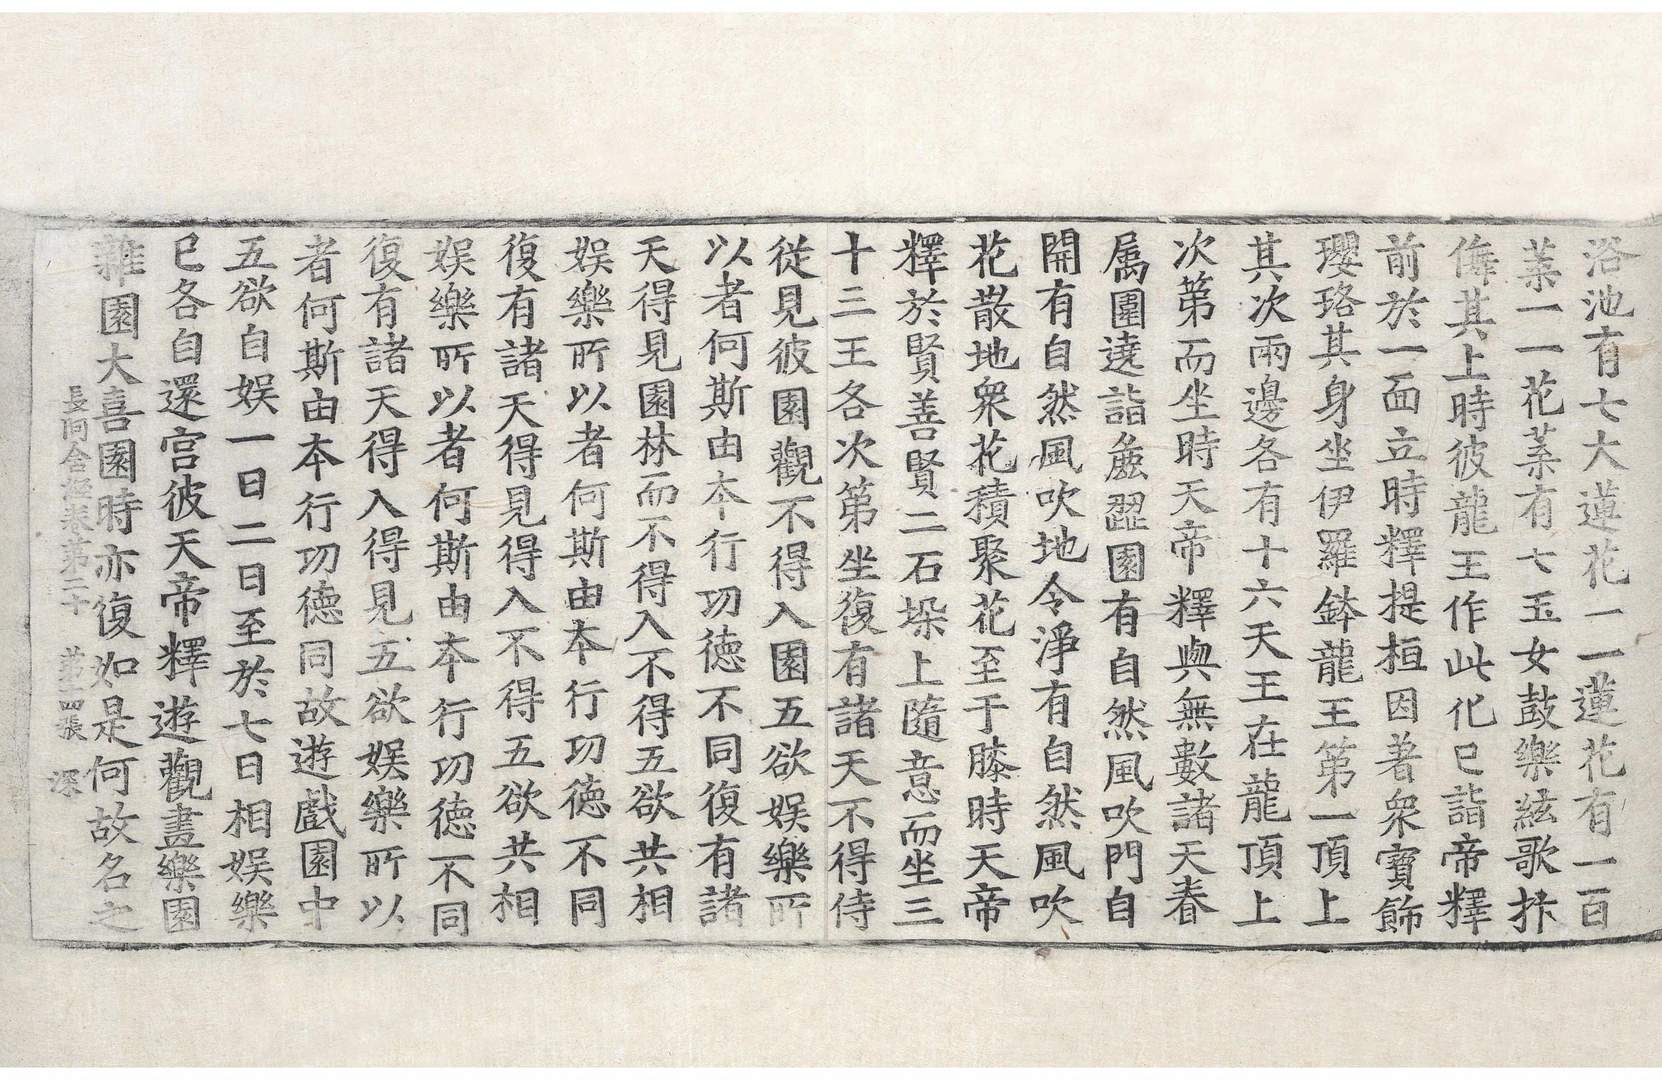 浴池有七大蓮花一一蓮花有一百
葉一一花葉有七玉女鼓樂絃歌抃
儛其上時彼龍王作此化已詣帝釋
前於一面立時釋提桓因著衆寶飾
瓔珞其身坐伊羅鉢龍王第一頂上
其次兩邊各有十六天王在龍頂上
次第而坐時天帝釋與無數諸天眷
属圍遶詣麁澀園有自然風吹門自
開有自然風吹地令淨有自然風吹
花散地衆花積聚花至于膝時天帝
釋於賢善賢二石垛上隨意而坐三
十三王各次第坐復有諸天不得侍
從見彼園觀不得入園五欲娛樂所
以者何斯由本行功德不同復有諸
天得見園林而不得入不得五欲共相
娛樂所以者何斯由本行功德不同
復有諸天得見得入不得五欲共相
娛樂所以者何斯由本行功德不同
復有諸天得入得見五欲娛樂所以
者何斯由本行功德同故遊戲園中
五欲自娛一日二日至於七日相娛樂
已各自還宮彼天帝釋遊觀晝樂園
雜園大喜園時亦復如是何故名之
長阿含經卷第二十 第十四張 深